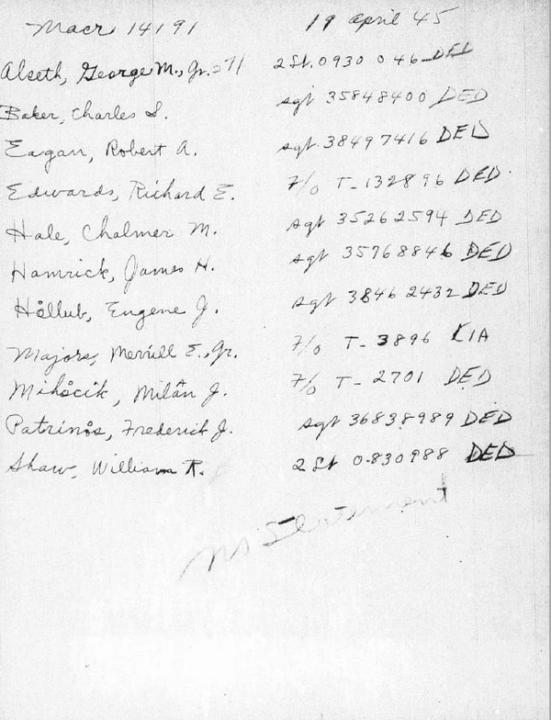 Macr 14191 19 april 45
Alseth, George M., Jr. 2 Lt. 0930 046 DED
Baker, Charles S. sgt 35848400 DED
Eagan, Robert A. sgt. 38497416 DED
Edwards, Richard E. 7/0 T-132896 DED
Hale, Chalmer M. sgt 35262594 DED
Hamrick, James H. sgt 35768846 DED
Hollub, Eugene J. sgt 38462432 DED
Majors, Merrill E., Jr. 7/0 T-3896 KIA
Mihocik, Milan J. 7/0 T-2701 DED
Patrinos, Frederick J. sgt 36838989 DED
Shaw, William R. 2 Lt 0-830988 DED
No Statement